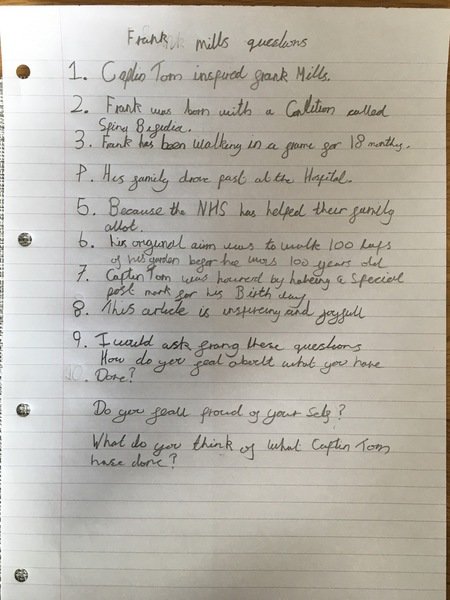 Frank mills questions
1. Captin Tom inspired frank Mills.
2. Frank was born with a Condition called
Spina Bifidia.
3. Frank has been walking in a frame for 18 months.
P. His family drove past at the Hospital.
5. Because the NHS has helped their family
allot.
6. his original aim was to walk 100 laps
of his garden befor he was 100 years old
7. Captin Tom was honred by habeing a special
post mark for his Birth day
8. This article is inspireing and joyfull
9. I would ask frang these questions
How do you feal aboult what you have
10. Done?
Do you feall proud of your self?
What do you think of what Captin Tom
have done?